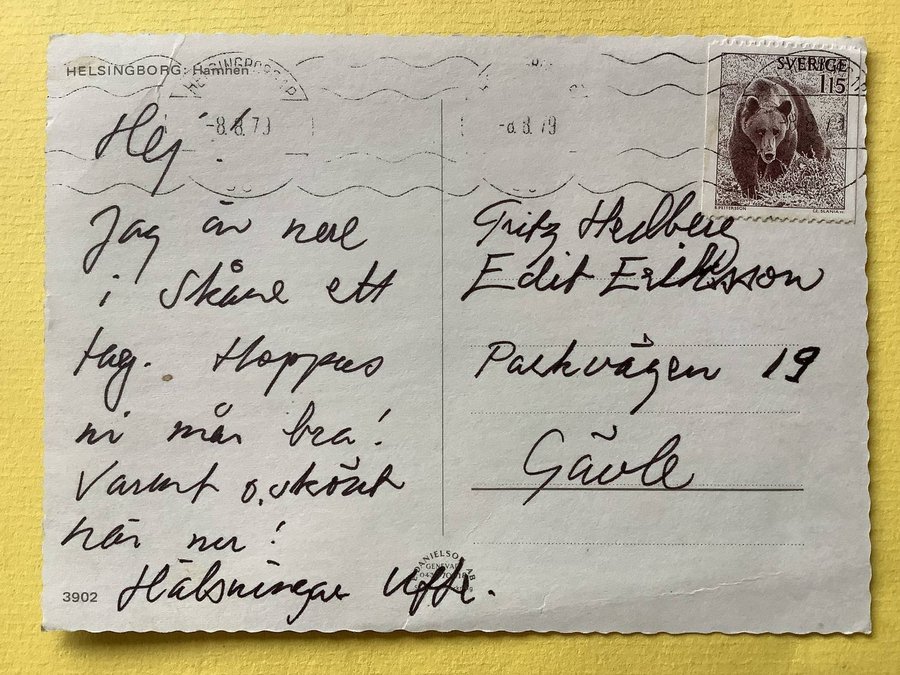 HELSINGBORG: Hamnen
HELSINGBORG
-8.8.79
-8.8.79
SVERIGE
115
Hej!
Jag är nere
i Skåne ett
tag. Hoppas
ni mår bra!
Varmt o. skönt
här ner!
Hälsningar Uffe.
Fritz Hedberg
Edit Eriksson
Parkvägen 19
Gävle
DANIELSON AB
GENEVAD
3902